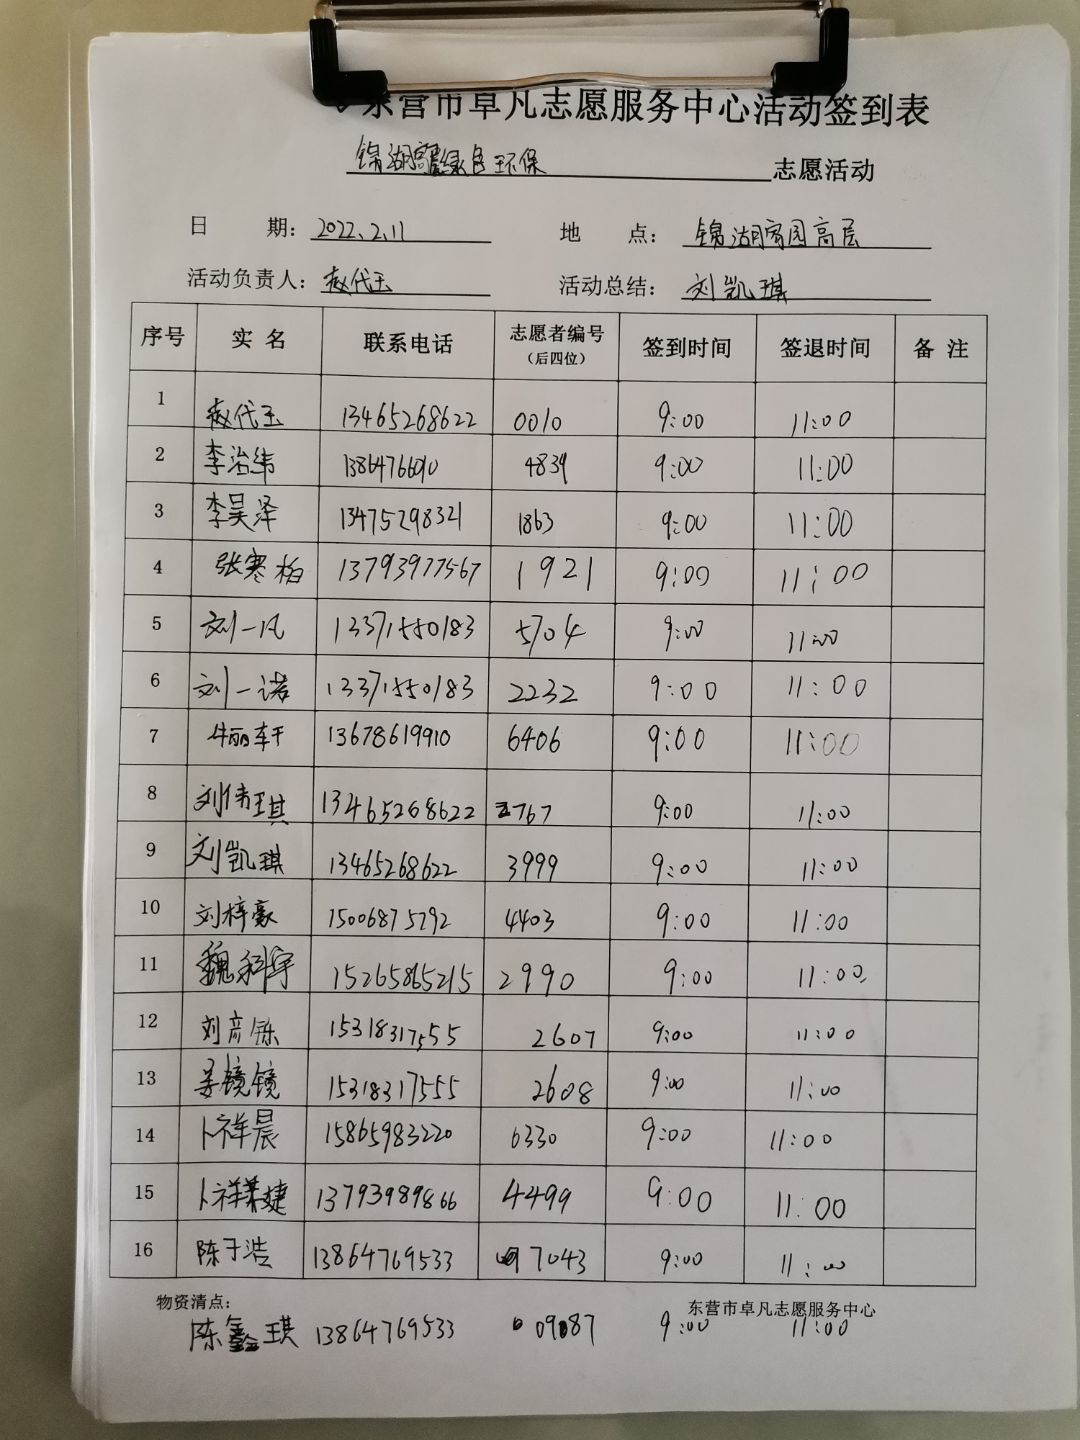 东营市卓凡志愿服务中心活动签到表
锦湖 绿色环保 志愿活动
日 期: 2022.2.11 地 点: 锦湖 园高层
活动负责人: 赵代玉 活动总结: 刘凯琪
序号 实名 联系电话 志愿者编号（后四位） 签到时间 签退时间 备注
1 赵代玉 13465268622 0010 9:00 11:00
2 李治纬 4839 9:00 11:00
3 李昊泽 13475298321 1863 9:00 11:00
4 张寒柏 13793977567 1921 9:00 11:00
5 刘一凡 13371550183 5704 9:00 11:00
6 刘一诺 13371550183 2232 9:00 11:00
7 牛丽轩 13678619910 6406 9:00 11:00
8 刘伟琪 13465268622 2767 9:00 11:00
9 刘凯琪 13465268622 3999 9:00 11:00
10 刘梓豪 15006875792 4403 9:00 11:00
11 魏科宇 15265865215 2990 9:00 11:00
12 刘彦铄 15318317555 2607 9:00 11:00
13 姜镜镜 15318317555 2608 9:00 11:00
14 卜祥晨 15865983220 6330 9:00 11:00
15 卜祥 婕 13793989866 4499 9:00 11:00
16 陈于浩 13864769533 7043 9:00 11:00
物资清点: 东营市卓凡志愿服务中心
陈鑫琪 13864769533 09087 9:00 11:00